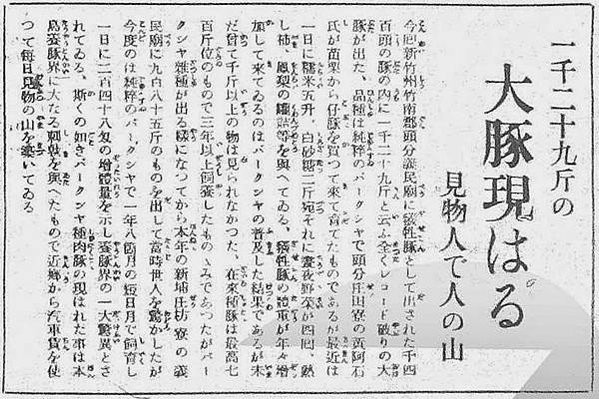 一千二十九斤の
大豚現はる
見物人で人の山
今回新竹州竹南郡頭分義民廟に犧牲豚として出された千四
百頭の豚の內に一千二十九斤と云ふ全くレコード破りの大
豚が出た、品種は純粹のバークシヤで頭分庄田寮の黃阿石
氏が苗栗から仔豚を買つて來て育てたものであるが最近は
一日に糯米五升、白砂糖二斤宛それに晝夜野菜が四回、熟
し柿、鳳梨の罐詰等を與へてゐる、犧牲豚の體重が年々增
加して來てゐるのはバークシヤの普及した結果であるが未
だ曾て千斤以上の物は見られなかつた、在來種豚は最高七
百斤位のもので三年以上飼養したもののみであつたがバー
クシヤ雜種が出る樣になつてから本年の新埔庄枋寮の義
民廟に九百八十五斤のものを出して當時世人を驚かしたが
今度のは純粹のバークシヤで一年八箇月の短日月で飼育し
一日に二百四十八匁の增體量を示し養豚界の一大驚異とさ
れてゐる、斯くの如きバークシヤ種肉豚の現はれた事は本
島養豚界に大なる刺戟を與へたもので近鄕から汽車賃を使
つて每日見物の山を築いてゐる